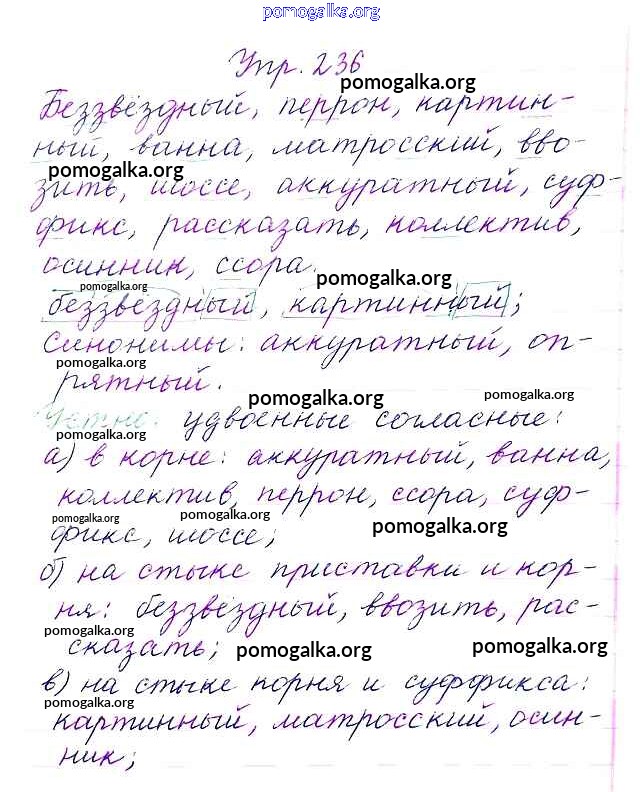 pomogalka.org
Упр. 236
pomogalka.org
Беззвёздный, перрон, картин-
ный, ванна, матросский, вво-
pomogalka.org
зить, шоссе, аккуратный, суф-
фикс, рассказать, коллектив,
осинник, ссора.
pomogalka.org
pomogalka.org
беззвёздный, картинный;
Синонимы: аккуратный, оп-
pomogalka.org
рятный.
pomogalka.org
pomogalka.org
Устно: удвоенные согласные:
pomogalka.org
а) в корне: аккуратный, ванна,
коллектив, перрон, ссора, суф-
pomogalka.org
pomogalka.org
pomogalka.org
фикс, шоссе;
б) на стыке приставки и кор-
ня: беззвёздный, ввозить, рас-
pomogalka.org
сказать;
pomogalka.org
pomogalka.org
в) на стыке корня и суффикса:
pomogalka.org
картинный, матросский, осин-
ник;